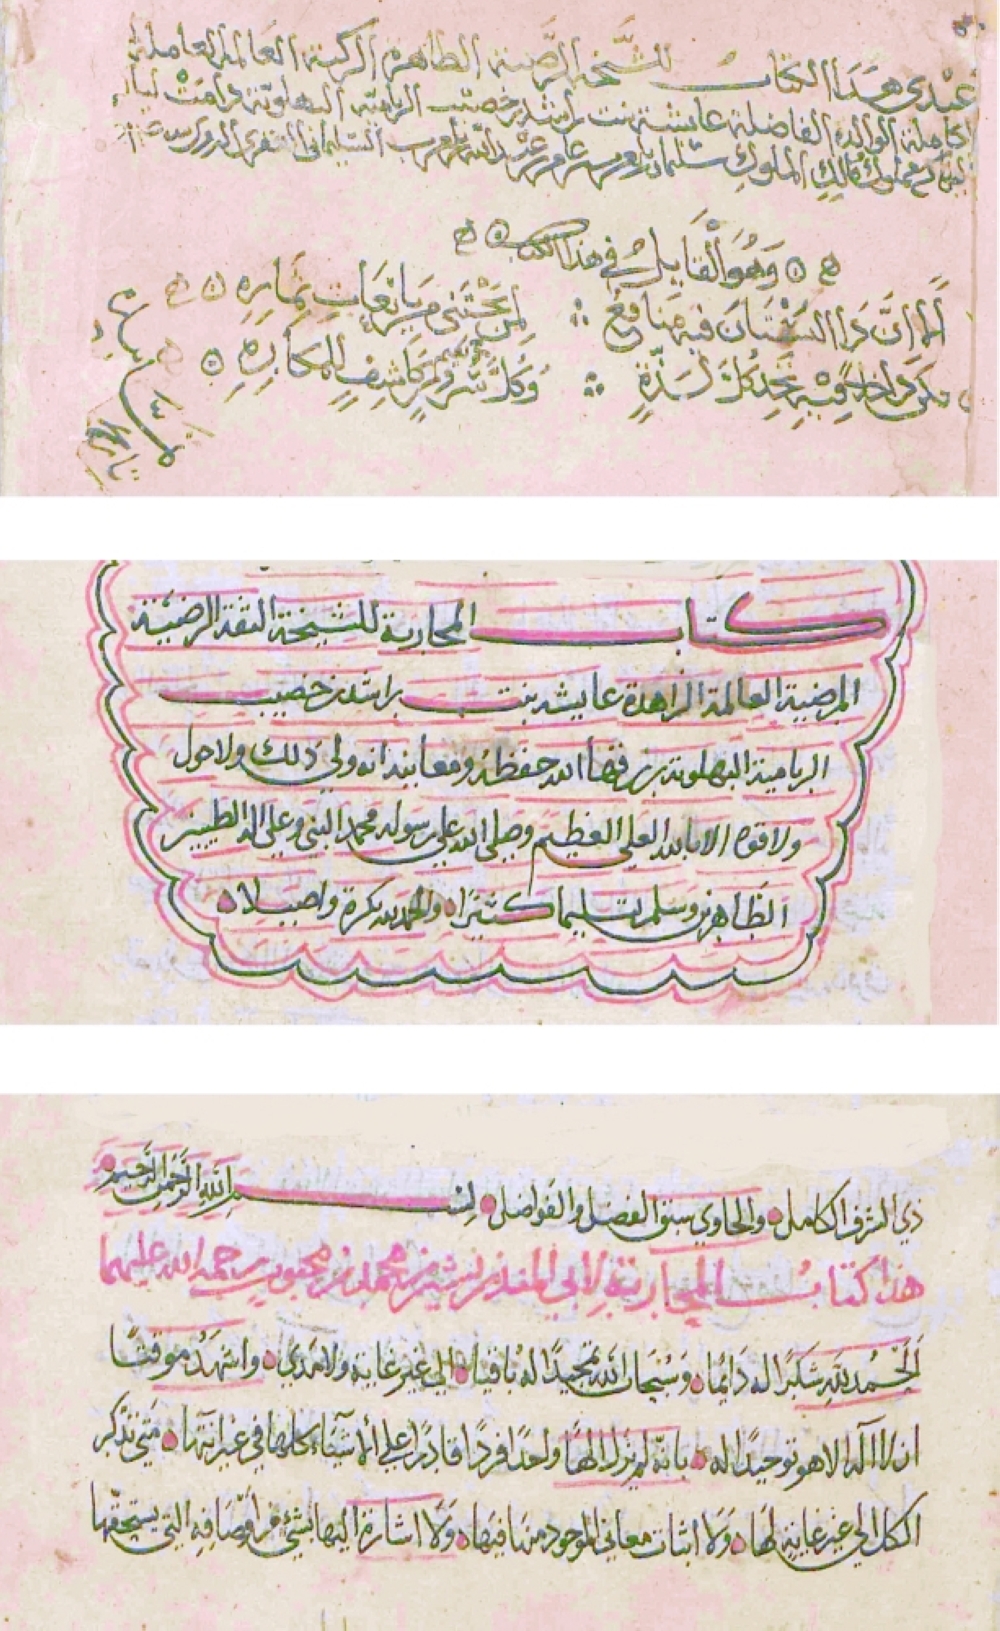 عندي هذا الكتاب للشيخة الرضية الطاهرة الزكية العالمة العاملة
الكاملة الوالدة الفاضلة عائشة بنت راشد بن خصيب الريامية البهلوية دامت
مملوك مالك الملوك سليمان بن عامر بن عبدالله بن بلعرب السليماني النفزي
وهو القايل في هذا الكتاب
ألا ان ذا البستان فيه منافع لمن يجتني من يانعات ثماره
داخلا فيه تجد كل لذة وكل سرور كاشف المكاره
كتاب المحاربة للشيخة الثقة الرضية
المرضية العالمة الزاهدة عايشة بنت راشد بن خصيب
الريامية البهلوية رزقها الله حفظه ومعانيه انه ولي ذلك ولا حول
ولا قوة الا بالله العلي العظيم وصلى الله على رسوله محمد النبي وعلى اله الطيبين
الطاهرين وسلم تسليما كثيرا والحمد لله بكرة واصيلا
ذي الشرف الكامل والحاوي سبق الفضل والفواضل بسم الله الرحمن الرحيم
هذا كتاب المحاربة لابي المنذر بشير بن محمد بن محبوب رحمه الله عليهما
الحمد لله شكرا له دائما وسبحان الله تمجيدا له باقيا الى غير غاية ولا مدى واشهد موقنا
ان لا اله الا هو توحيدا له بانه لم يزل الها واحدا فردا قادرا على الاشياء كلها في غير انتها متى تذكر
الكل الى غير غاية لها ولا اثبات معاني الموجود منها فيها ولا اشارة اليها بشيء من اوصافه التي يستحقها